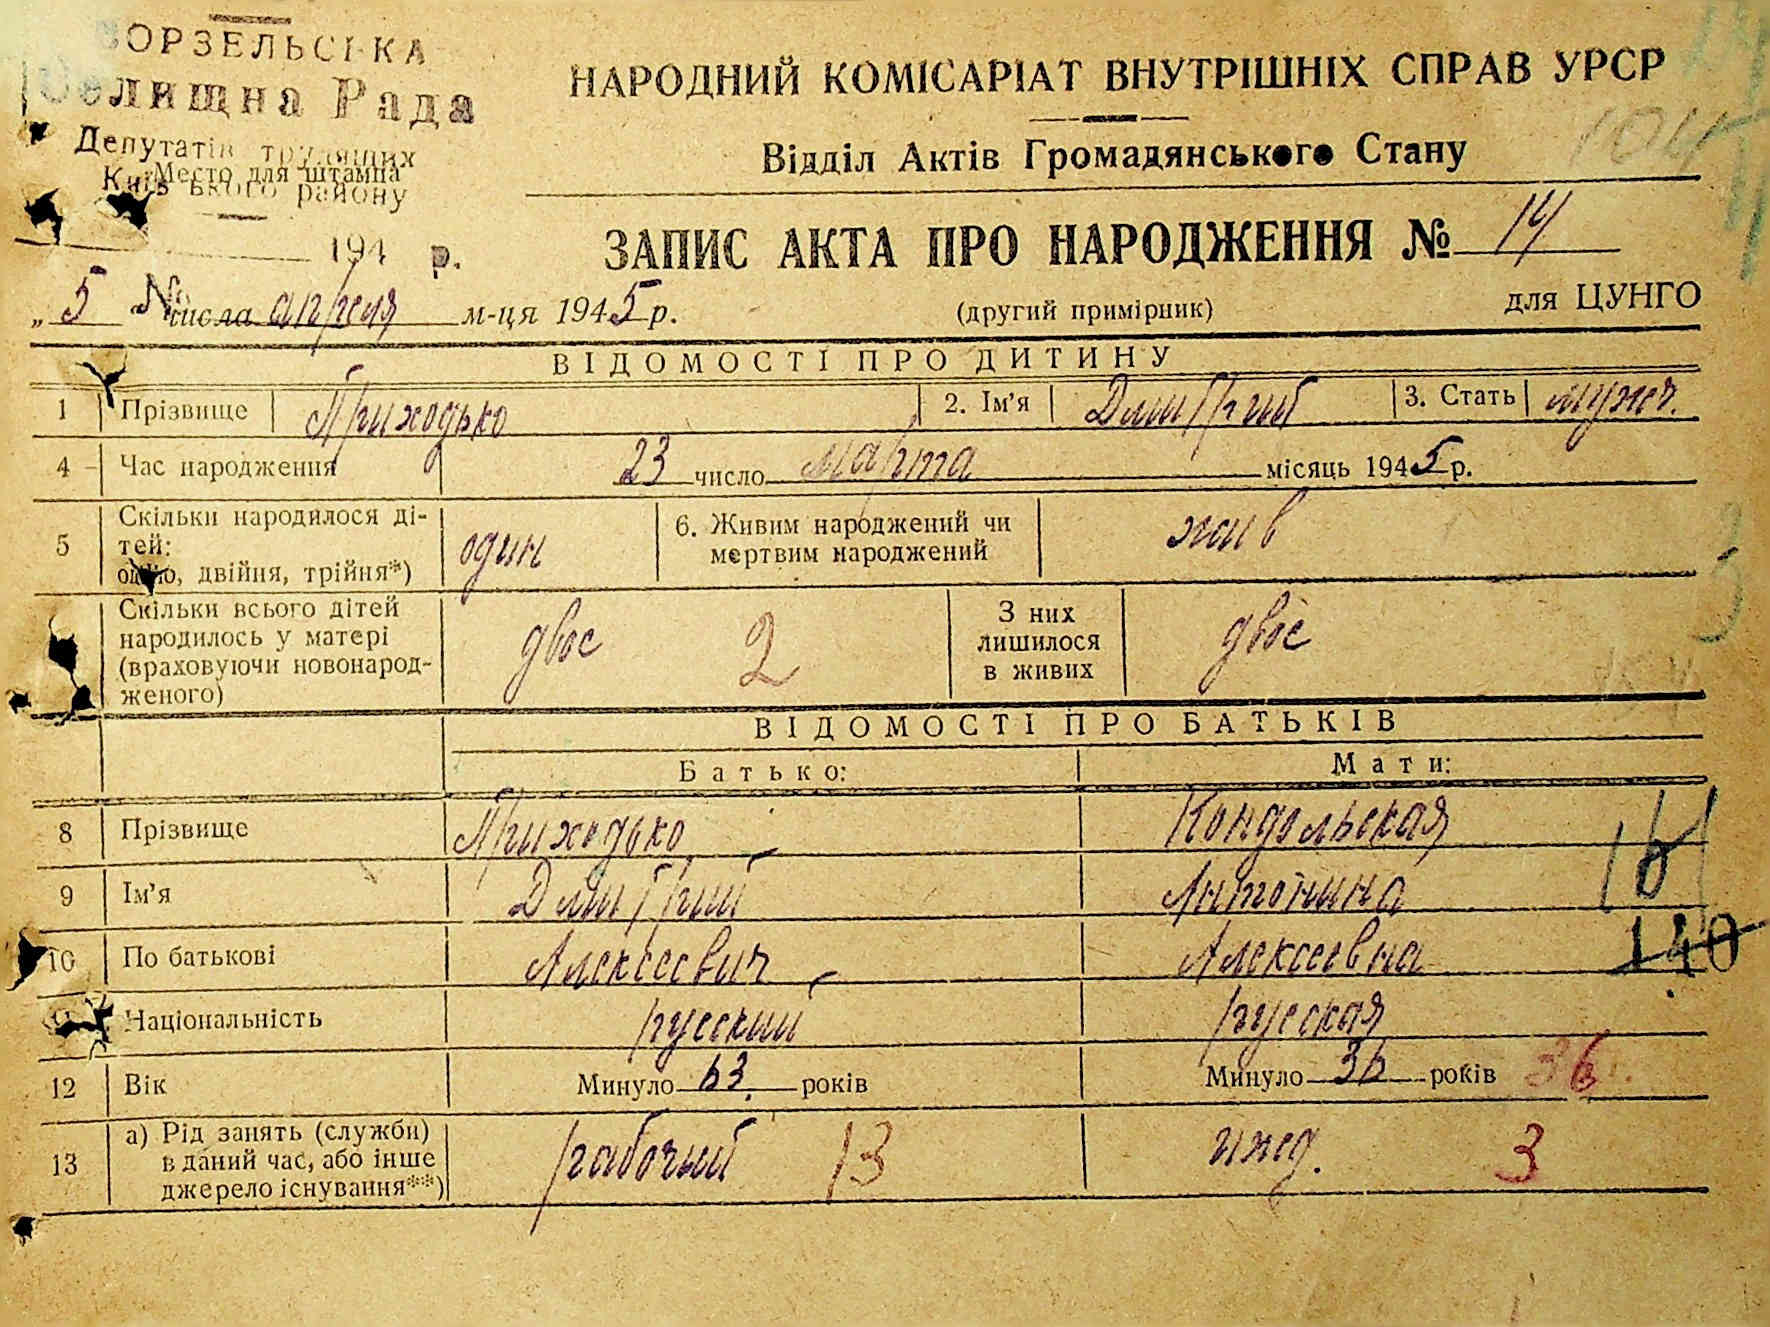 ВОРЗЕЛЬСЬКА
Селищна Рада
Депутатів трудящих
Место для штампа
Київського району
194 р.
НАРОДНИЙ КОМІСАРІАТ ВНУТРІШНІХ СПРАВ УРСР
104
Відділ Актів Громадянського Стану
ЗАПИС АКТА ПРО НАРОДЖЕННЯ № 14
„ 5 “ числа апреля м-ця 1945 р.
(другий примірник)
для ЦУНГО
ВІДОМОСТІ ПРО ДИТИНУ
1 Прізвище Приходько 2. Ім'я Дмитрий 3. Стать мужч.
4 Час народження 23 число марта місяць 1945 р.
5 Скільки народилося ді-
тей:
одно, двійня, трійня*) один
6. Живим народжений чи
мертвим народжений жив
Скільки всього дітей
народилось у матері
(враховуючи новонарод-
женого) двое 2
З них
лишилося
в живих двое
ВІДОМОСТІ ПРО БАТЬКІВ
Батько: Мати:
8 Прізвище Приходько Кондольская
9 Ім'я Дмитрий Антонина
10 По батькові Алексеевич Алексеевна
140
Національність русский русская
12 Вік Минуло 63 років Минуло 36 років 36
13 а) Рід занять (служби)
в даний час, або інше
джерело існування**) рабочий 13 ижд. 3